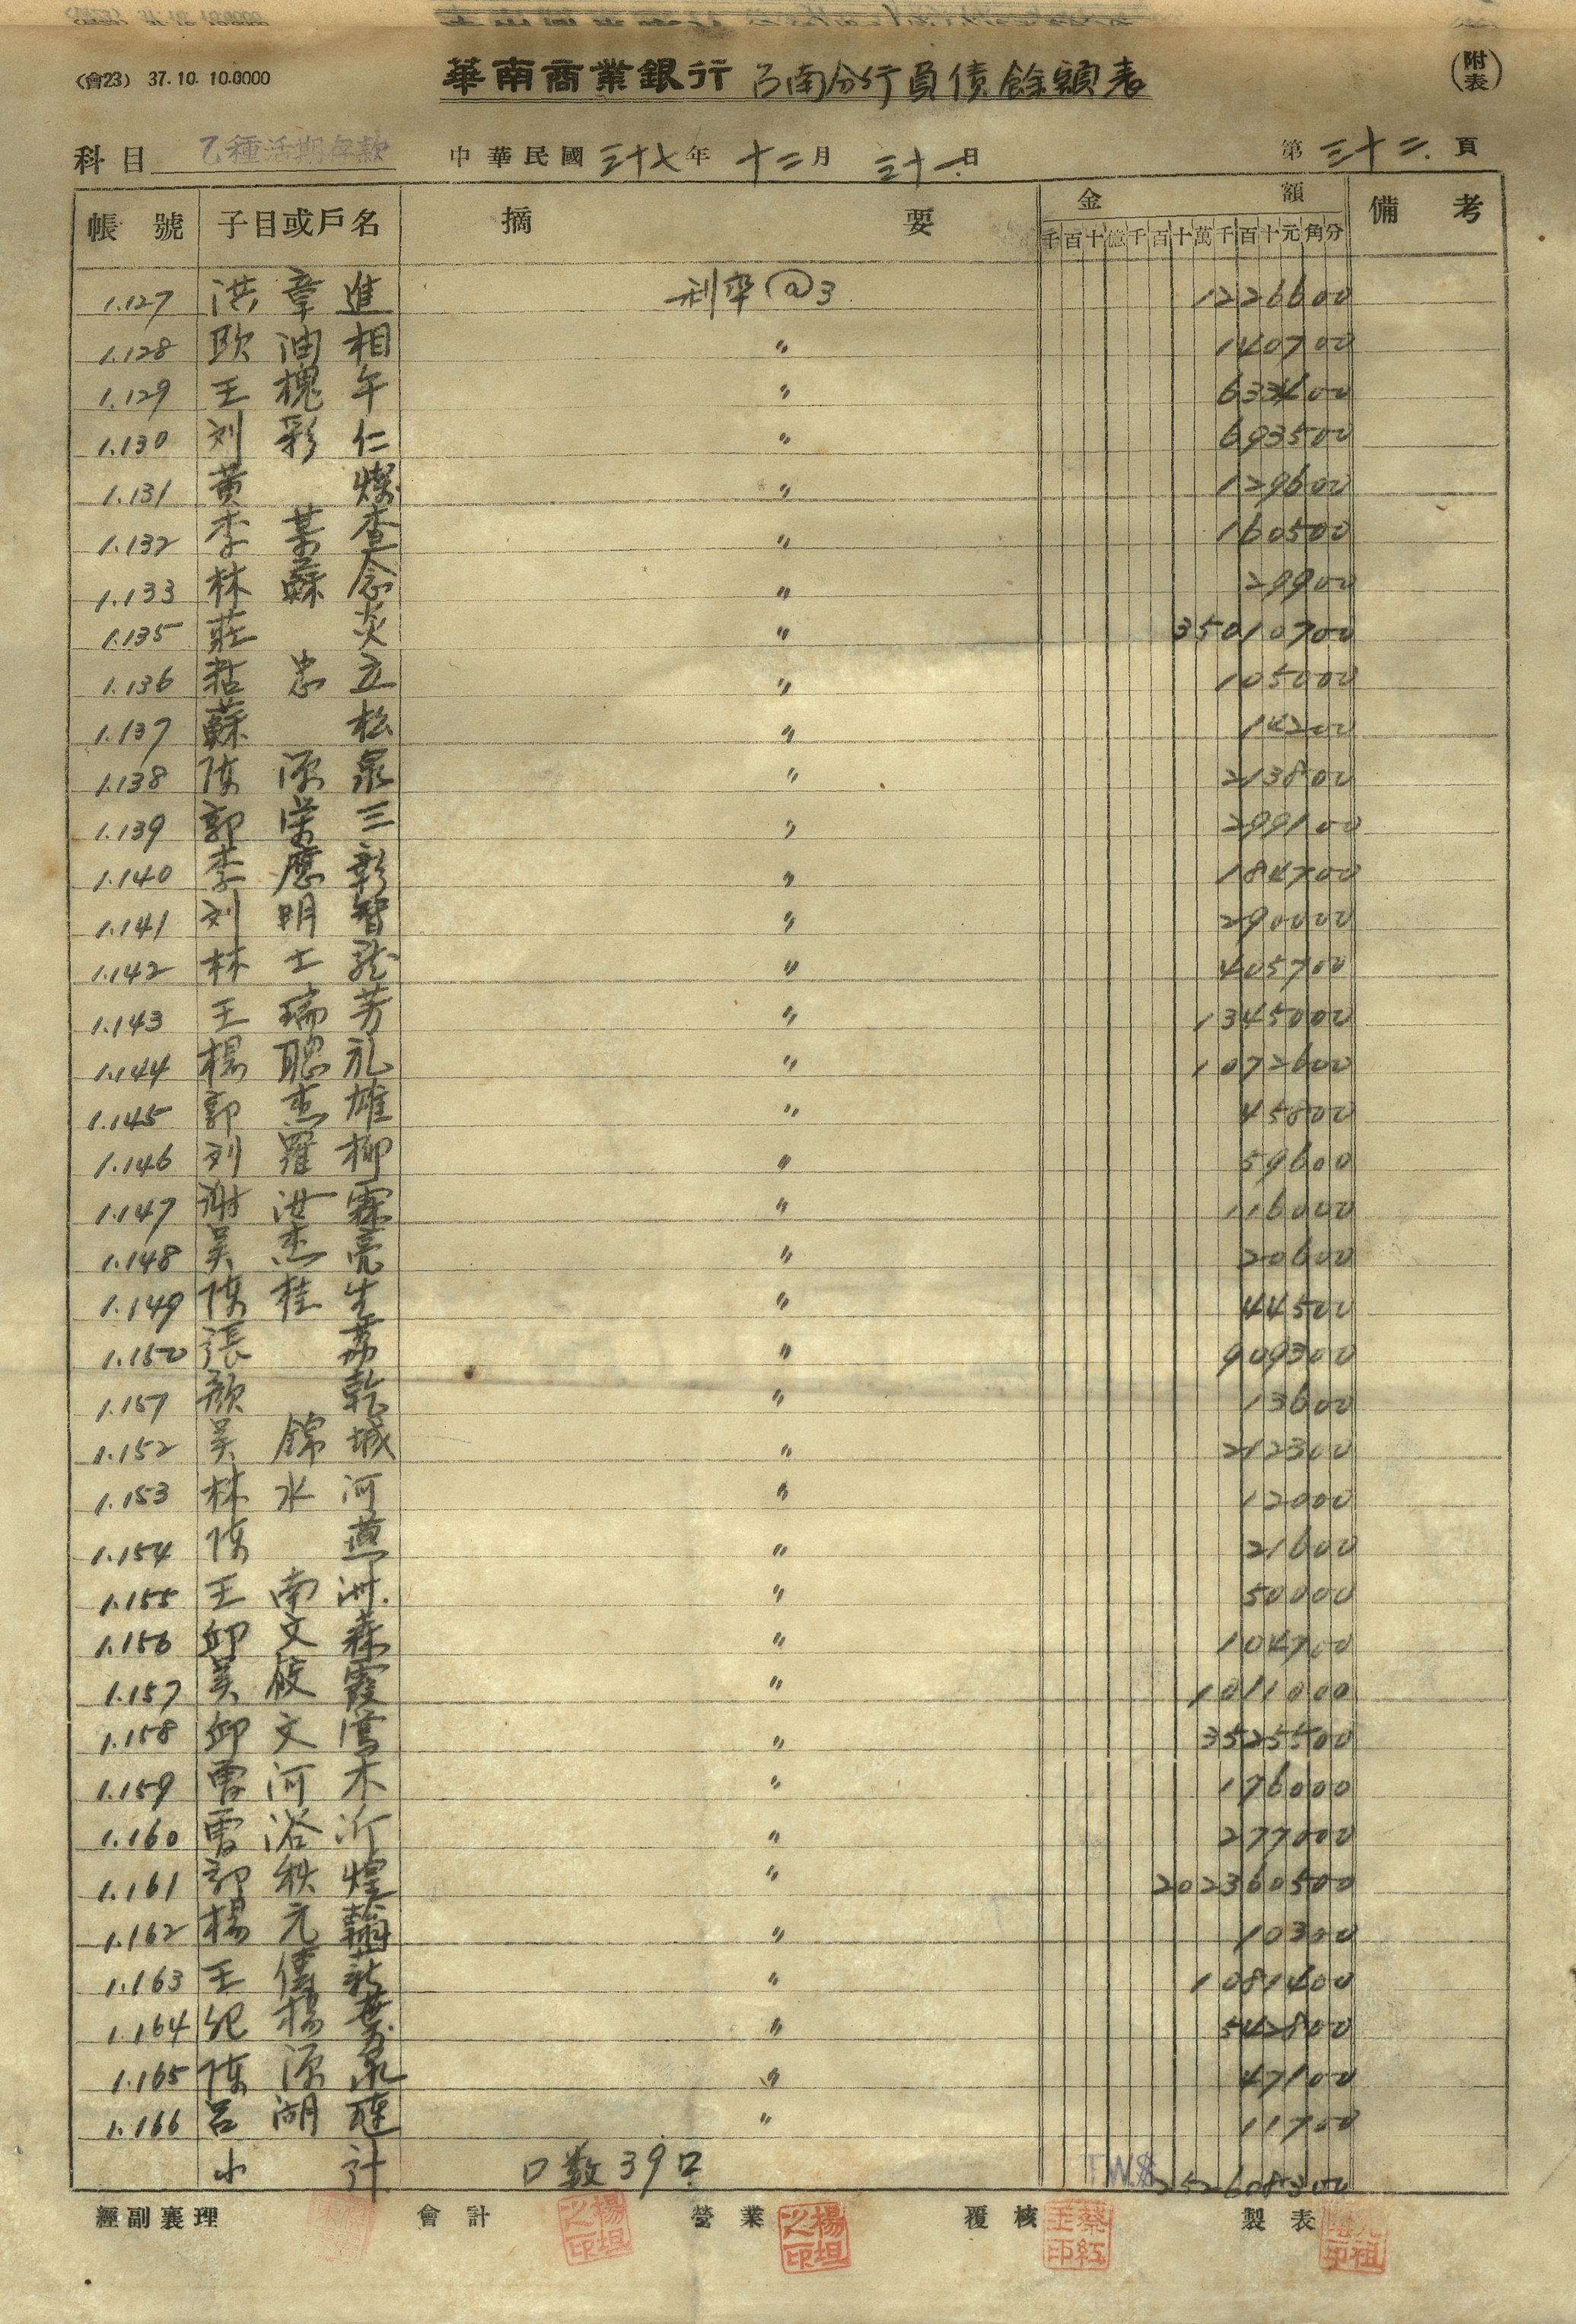 (會23) 37.10.10.0000
華南商業銀行 台南分行負債餘額表
(附表)
科目 乙種活期存款 中華民國三十七年十二月三十一日 第三十二頁
帳號 子目或戶名 摘要 金額 備考
千百十億千百十萬千百十元角分
1.127 洪章進 利率@3 1226600
1.128 欧油相 〃 140700
1.129 王槐午 〃 633400
1.130 刘彩仁 〃 693500
1.131 黃燦 〃 129600
1.132 李葉查 〃 160500
1.133 林蘇念 〃 29900
1.135 莊炎 〃 35010700
1.136 忠立 〃 105000
1.137 蘇松 〃 14200
1.138 陳源泉 〃 213800
1.139 郭榮三 〃 299100
1.140 李應彰 〃 184700
1.141 刘明智 〃 290000
1.142 林士 〃 405700
1.143 王瑞芳 〃 1345000
1.144 楊聰礼 〃 1072600
1.145 郭杰雄 〃 45800
1.146 刘羅柳 〃 59600
1.147 謝洪霖 〃 116000
1.148 吴杰亮 〃 20600
1.149 陳桂生 〃 44500
1.150 張荔 〃 909300
1.157 顏乾 〃 13600
1.152 吴錦城 〃 212300
1.153 林水河 〃 12000
1.154 陳燕 〃 21600
1.155 王南洲 〃 50000
1.156 邱文森 〃 104700
1.157 吴筱霞 〃 1011000
1.158 邱文鶯 〃 3525500
1.159 曹河木 〃 176000
1.160 曹浴沂 〃 277000
1.161 郭秩煌 〃 202360500
1.162 楊元翰 〃 10300
1.163 王 〃 1081400
1.164 紀楊 〃 542800
1.165 陳源泉 〃 47100
1.166 呂湖璉 〃 11700
小計 口数39口 T.W.$ 252608300
經副襄理 會計 營業 覆核 製表
楊坦之印 楊坦之印 蔡紅玉印